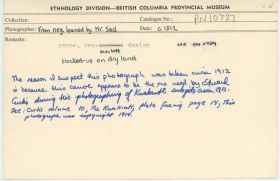 ETHNOLOGY DIVISION—BRITISH COLUMBIA PROVINCIAL MUSEUM
Collection: Catalogue No.: PN10727
Photographer: From neg loaned by Mr. Sad. Date: c 1912
Remarks:
canoe, design
Mocked-up on dry land
The reason I suspect this photograph was taken circa 1912
is because this canoe appears to be the one used by Edward
Curtis during his photographing of Kwakiutl subjects
See: Curtis volume 10, The Kwakiutl, plate facing page 14, This
photograph was copyright 1914.